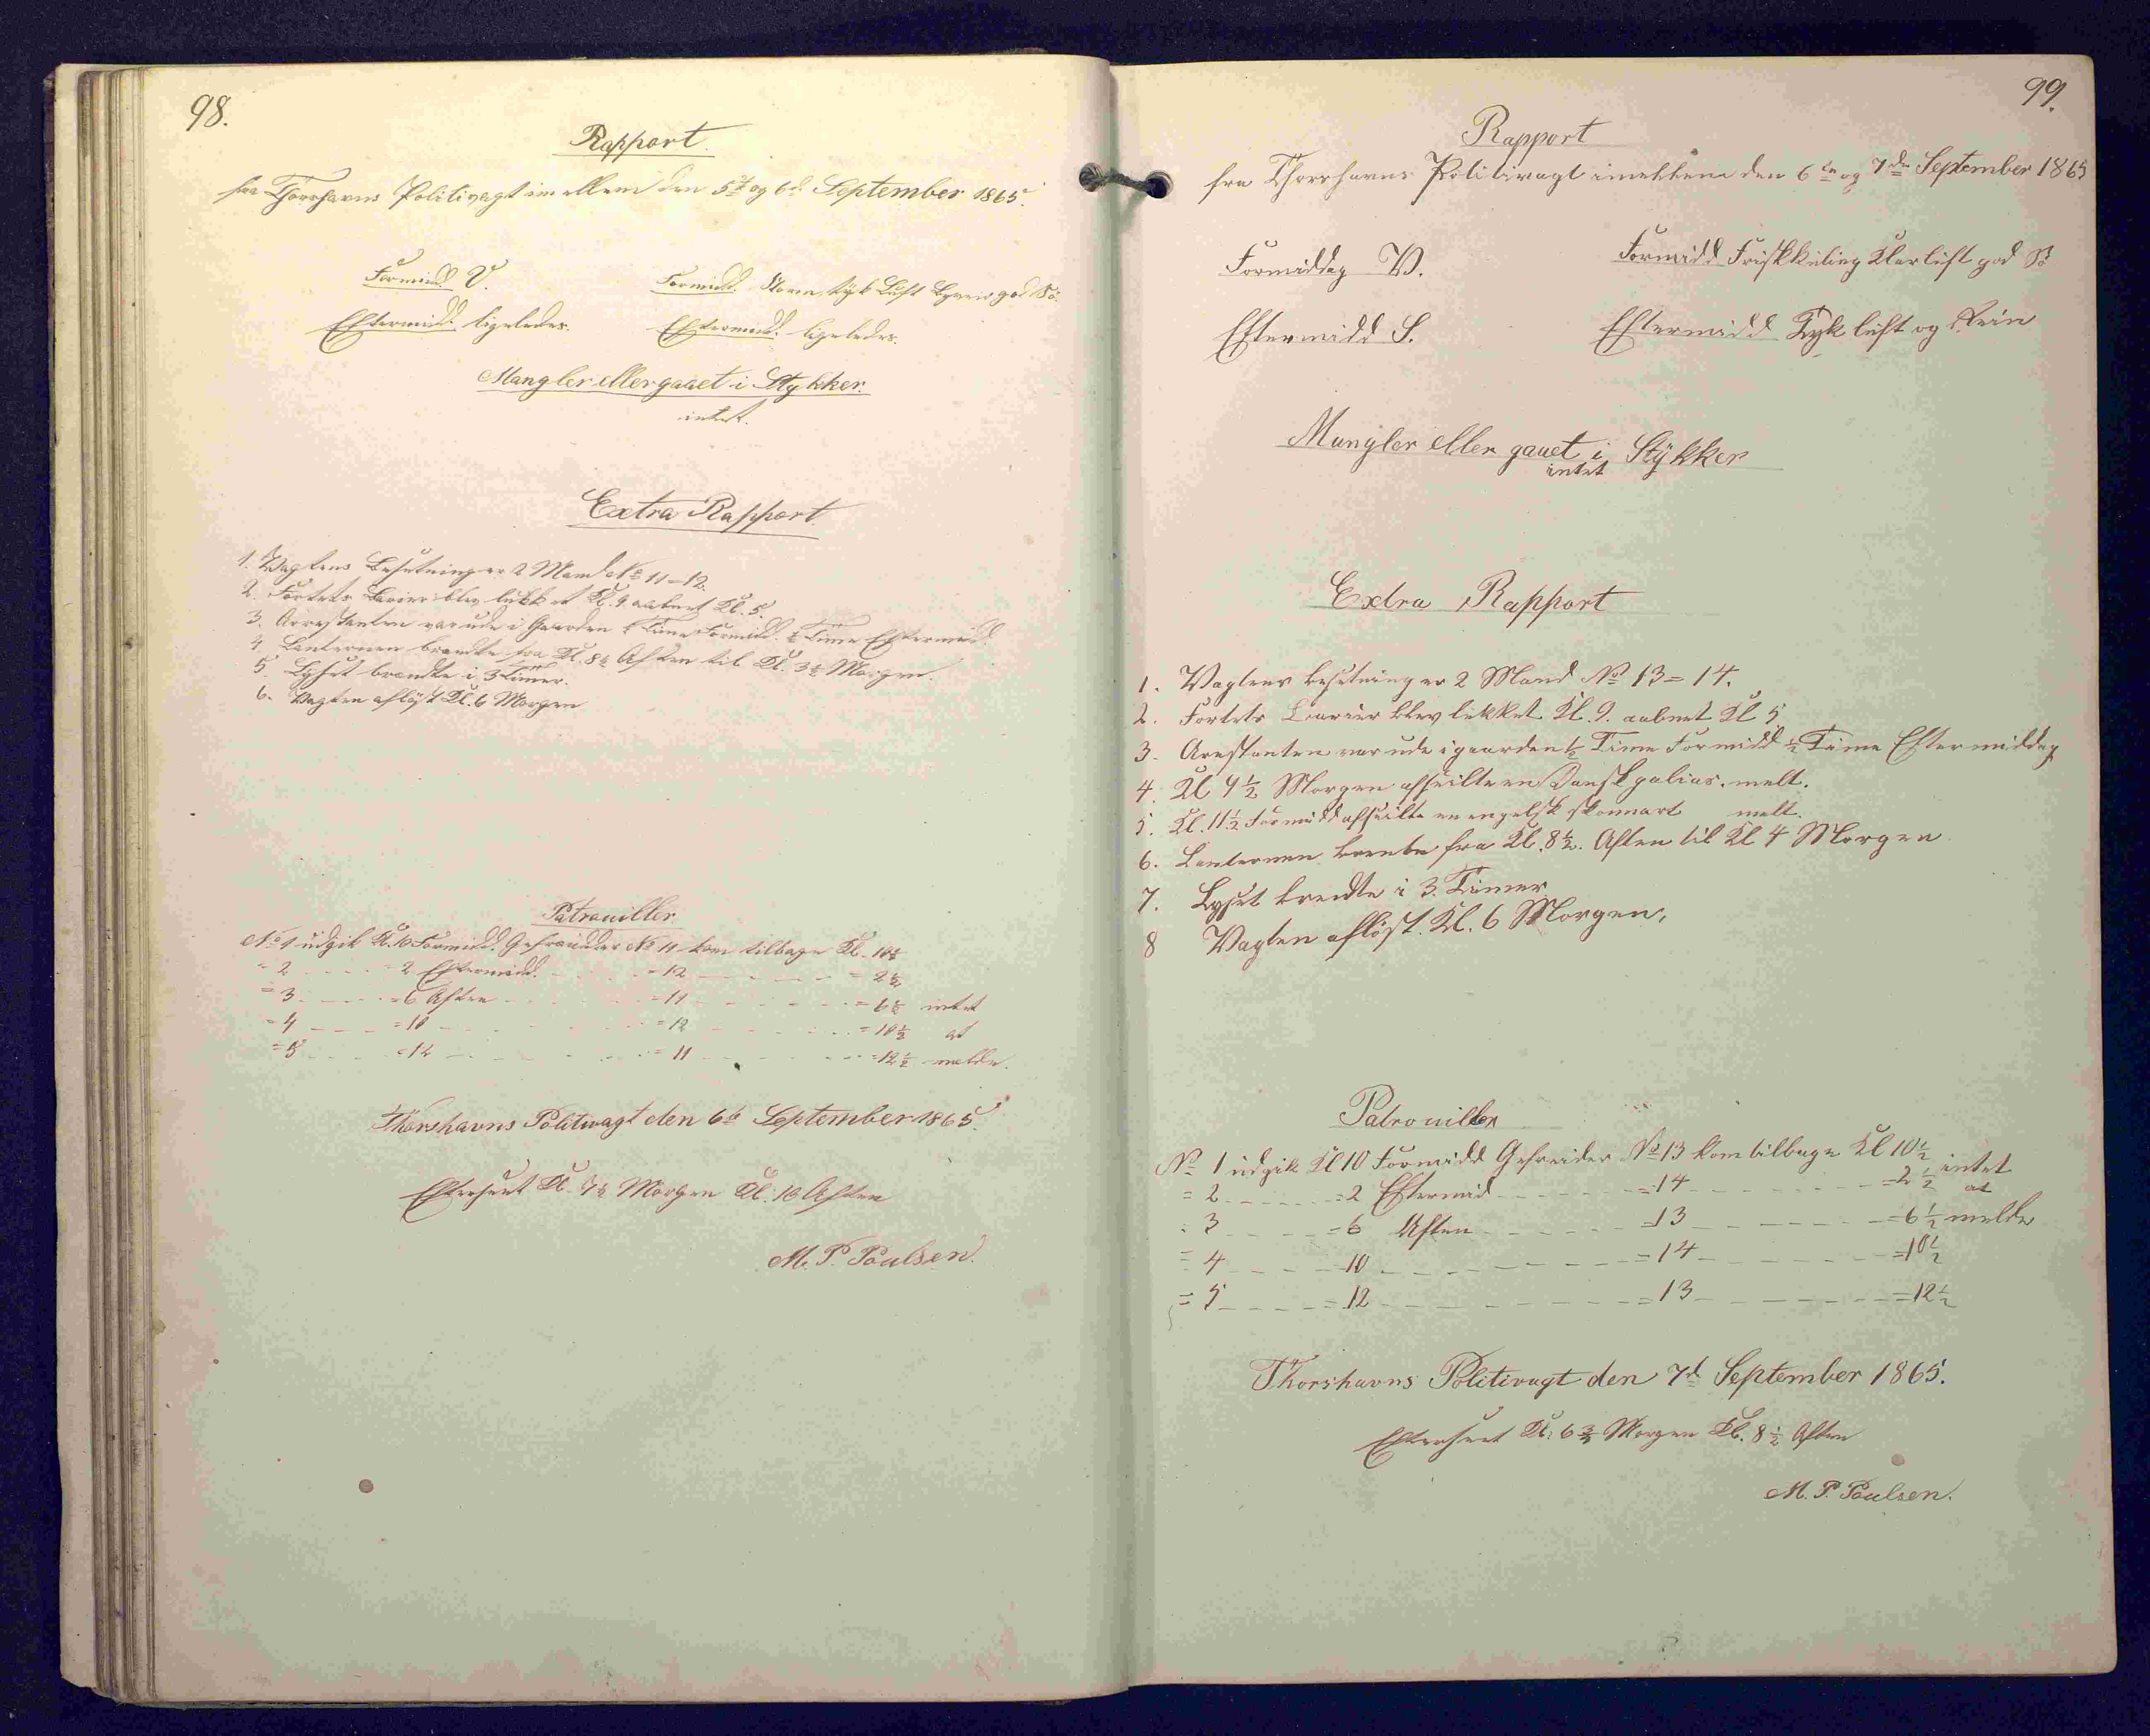 98.
Rapport.
fra Thorshavns Politivagt imellem den 5te og 6te September 1865.
Formidd. V. Formidd. Storm, tyk Luft Byevis god Sø.
Eftermidd. ligeledes. Eftermidd. ligeledes.
Mangler eller gaaet i Stykker.
intet.
Extra Rapport
1. Vagtens Besætning er 2 Mand No 11=12.
2. Fortets Barier blev lukket Kl. 9 aabnet Kl. 5.
3. Arrestanten var ude i Gaarden ½ Time Formidd. ½ Time Eftermidd.
4. Lanternen brændte fra Kl. 8½ Aften til Kl. 3½ Morgen.
5. Lyset brændte i 3 Timer.
6. Vagten afløst Kl. 6 Morgen
Patrouiller
No 1 udgik Kl. 10 Formidd. Gefreider No 11 kom tilbage Kl. 10½
= 2 = 2 Eftermidd. = 12 = 2½
= 3 = 6 Aften = 11 = 6½ intet
= 4 = 10 = 12 = 10½ at
= 5 = 12 = 11 = 12½ melde.
Thorshavns Politivagt den 6te September 1865.
Efterseet Kl. 7½ Morgen Kl. 10 Aften
M. P. Poulsen.
99.
Rapport
fra Thorshavns Politivagt imellem den 6te og 7de September 1865
Formiddag V. Formidd Friskkuling Klarluft god Sø
Eftermidd S. Eftermidd Tyk luft og Rein
Mangler eller gaaet i Stykker
intet
Extra Rapport
1. Vagtens besetning er 2 Mand No 13=14.
2. Fortets Barier blev lukket Kl. 9. aabnet Kl 5
3. Arestanten var ude i gaarden ½ Time Formidd ½ Time Eftermiddag
4. Kl 9½ Morgen afseilte en Dansk galias. melt.
5. Kl. 11½ Formidd afseilte en engelsk skonnart melt.
6. Lanternen brente fra Kl. 8½. Aften til Kl 4 Morgen
7. Lyset brendte i 3. Timer
8 Vagten afløst. Kl. 6 Morgen,
Patrouiller
No 1 udgik Kl 10 Formidd Gefreider No 13 kom tilbage Kl 10½ intet
= 2 = 2 Eftermid = 14 = 2½ at
= 3 = 6 Aften = 13 = 6½ melde
= 4 10 = 14 = 10½
= 5 = 12 = 13 = 12½
Thorshavns Politivagt den 7d September 1865.
Efterseet Kl: 6¾ Morgen Kl. 8½ Aften
M. P. Poulsen.